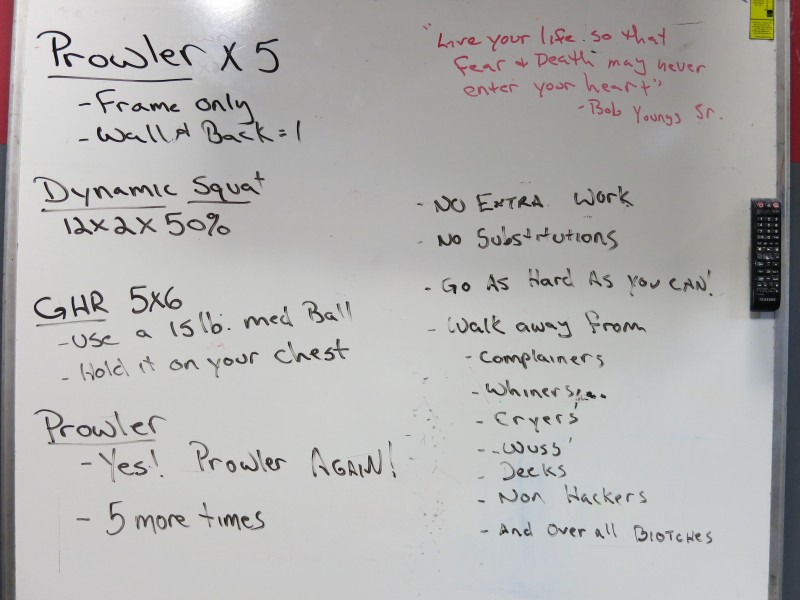 Prowler x 5
- Frame only
- Wall & Back = 1
Dynamic Squat
12x2x50%
GHR 5x6
- Use a 15 lb. med Ball
- Hold it on your chest
Prowler
- Yes! Prowler AGAIN!
- 5 more times
"Live your life so that
fear & Death may never
enter your heart"
- Bob Youngs Sr.
- NO EXTRA Work
- No Substitutions
- Go As Hard As You CAN!
- Walk away from
- Complainers
- Whiners...
- Cryers'
- Wuss'
- Decks
- Non Hackers
- And Over all BIOTCHES
SAMSUNG